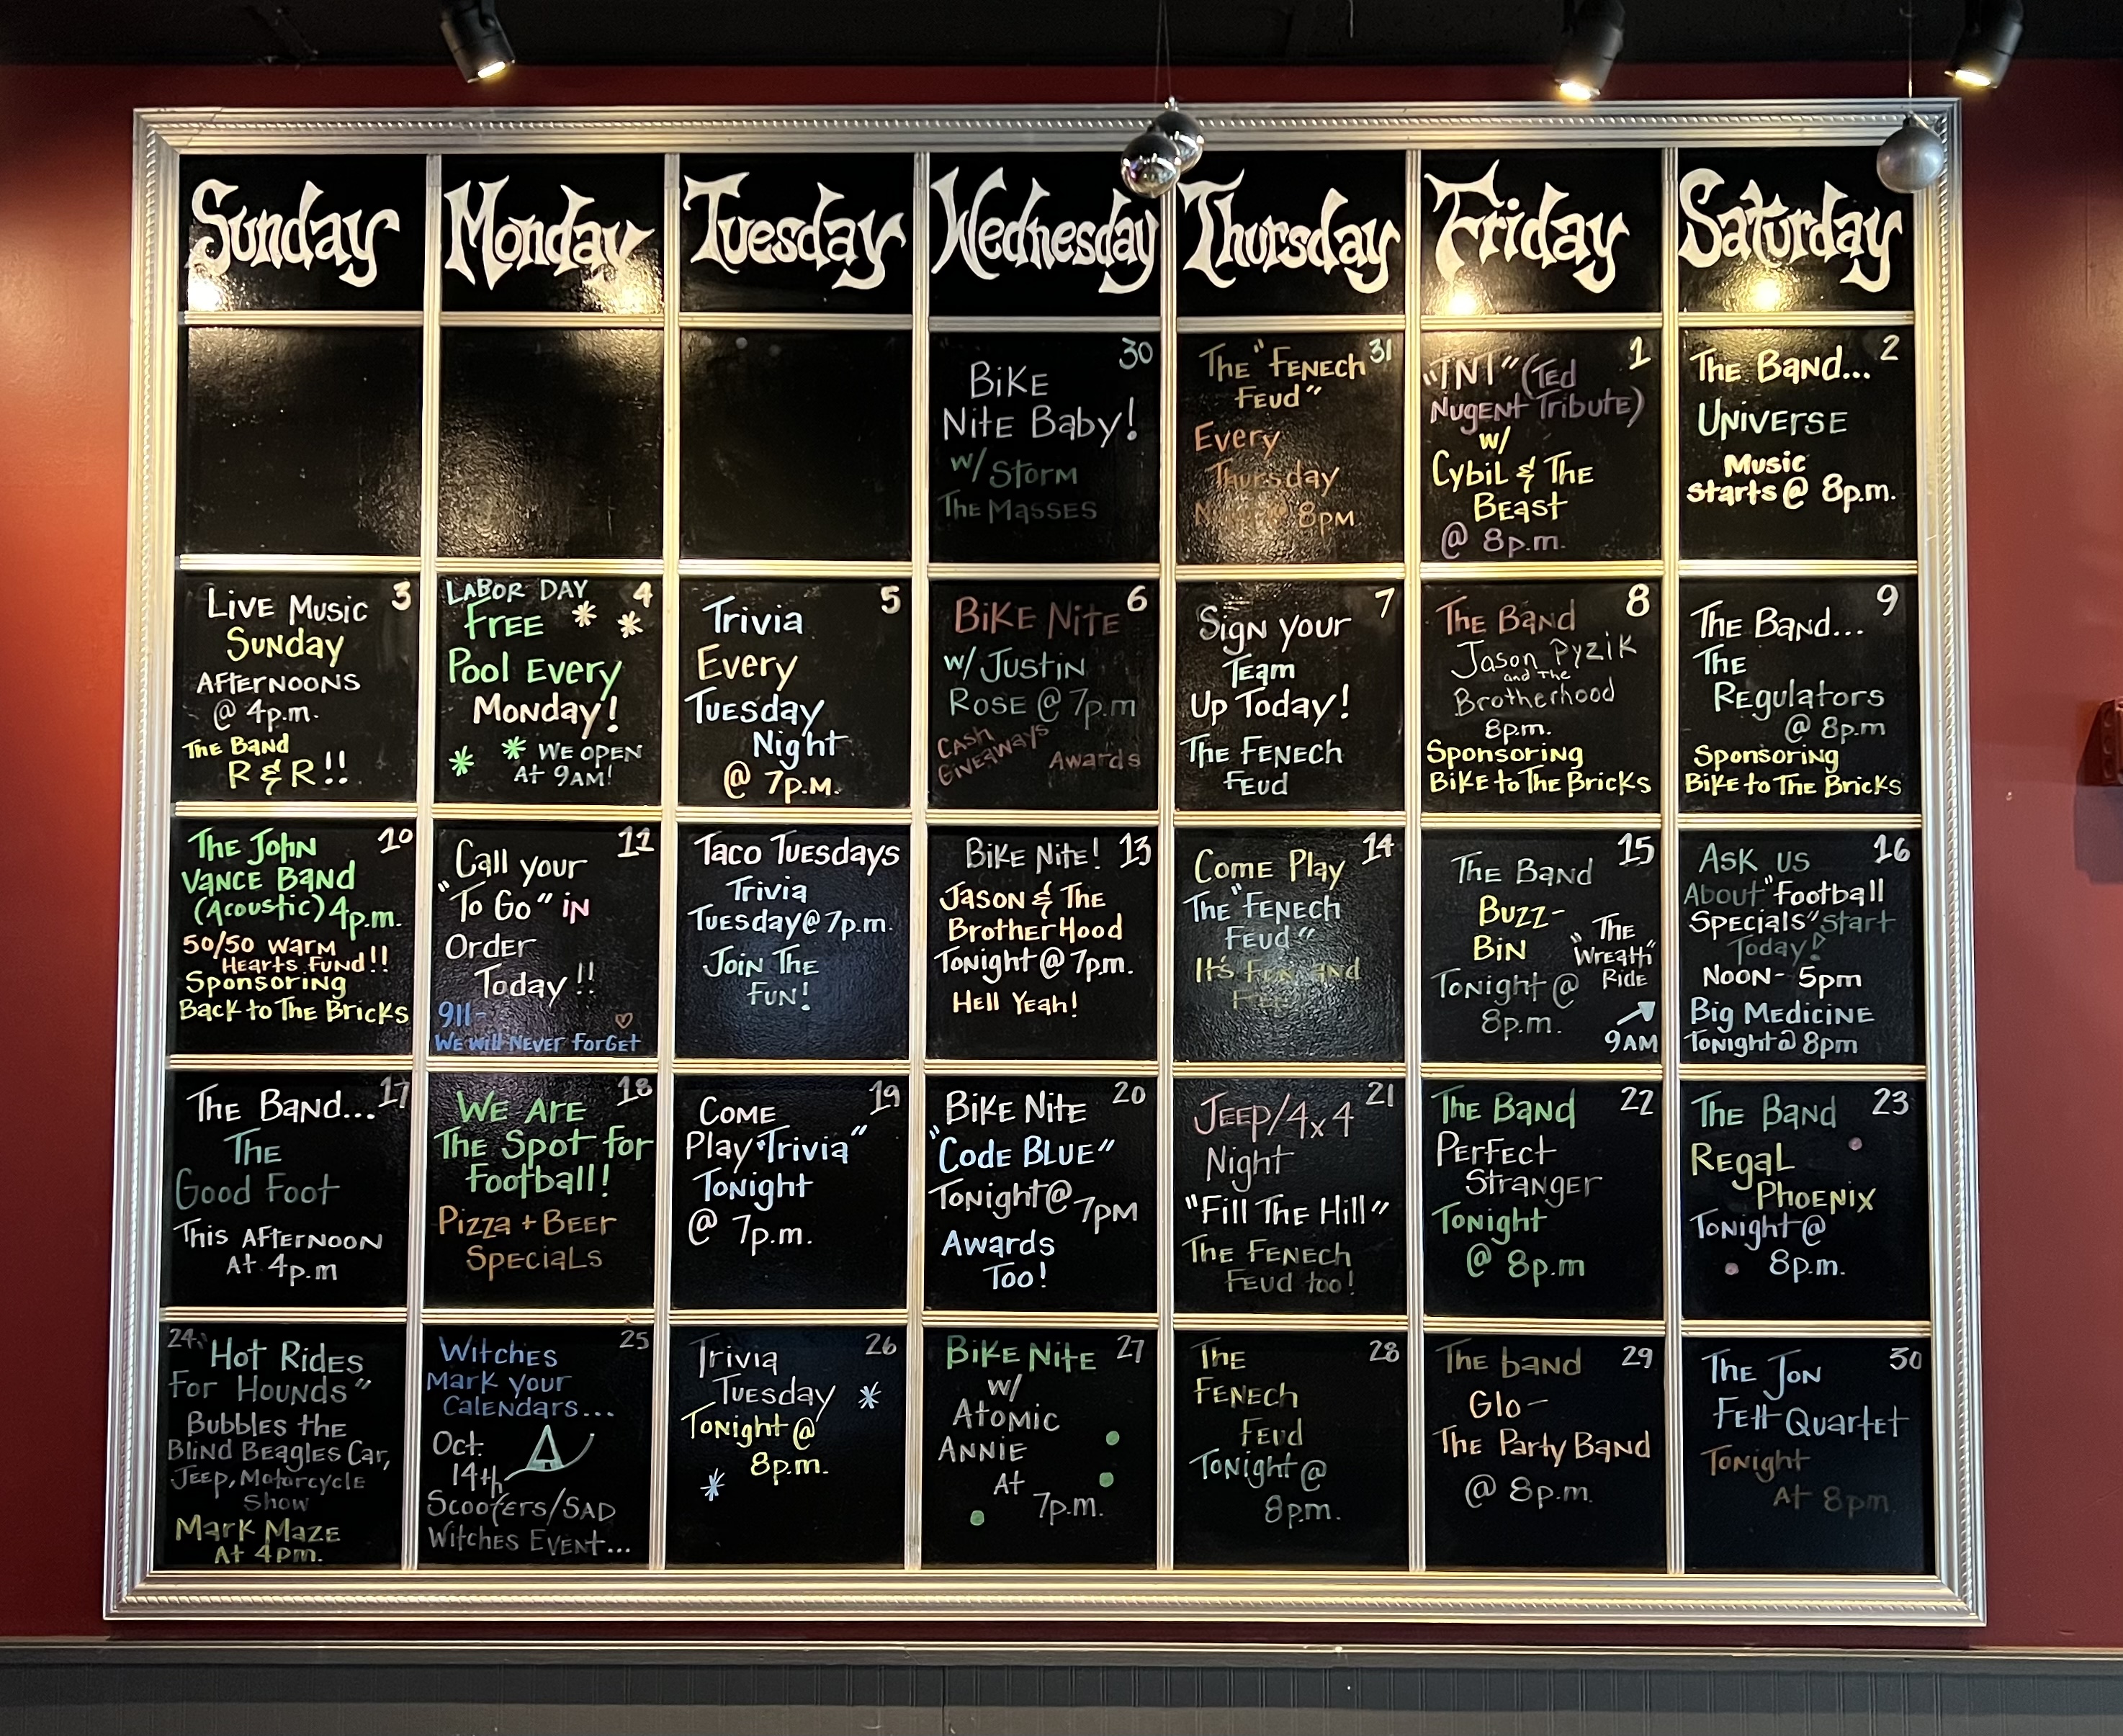 Sunday
Monday
Tuesday
Wednesday
Thursday
Friday
Saturday
30
BiKE
NitE Baby!
w/ Storm
The Masses
31
The "Fenech
Feud"
Every
Thursday
8pm
1
"TNT" (Ted
Nugent Tribute)
w/
Cybil & The
Beast
@ 8p.m.
2
The Band...
Universe
Music
Starts @ 8p.m.
3
Live Music
Sunday
Afternoons
@ 4p.m.
The Band
R & R!!
4
Labor Day
Free
Pool Every
Monday!
We open
At 9AM!
5
Trivia
Every
Tuesday
Night
@ 7p.m.
6
Bike Nite
w/ Justin
Rose @ 7p.m
Cash
Giveaways
Awards
7
Sign your
Team
Up Today!
The Fenech
Feud
8
The Band
Jason Pyzik
and the
Brotherhood
8pm.
Sponsoring
Bike to The Bricks
9
The Band...
The
Regulators
@ 8p.m
Sponsoring
Bike to The Bricks
10
The John
Vance Band
(Acoustic) 4p.m.
50/50 Warm
Hearts Fund!!
Sponsoring
Back to The Bricks
11
Call your
"To Go" in
Order
Today!!
911-
We will Never Forget
Taco Tuesdays
Trivia
Tuesday @ 7p.m.
Join The
Fun!
13
Bike Nite!
Jason & The
BrotherHood
Tonight @ 7pm.
Hell Yeah!
14
Come Play
The "Fenech
Feud"
It's Fun and
15
The Band
Buzz-
Bin
Tonight @
8p.m.
"The
Wreath"
Ride
9AM
16
Ask us
About "Football
Specials" Start
Today!
Noon - 5pm
Big Medicine
Tonight @ 8pm
17
The Band...
The
Good Foot
This Afternoon
At 4p.m
18
We Are
The Spot for
Football!
Pizza + Beer
Specials
19
Come
Play "Trivia"
Tonight
@ 7p.m.
20
Bike Nite
"Code Blue"
Tonight @ 7pm
Awards
Too!
21
Jeep/4x4
Night
"Fill The Hill"
The Fenech
Feud too!
22
The Band
Perfect
Stranger
Tonight
@ 8p.m
23
The Band
Regal
Phoenix
Tonight @
8p.m.
24
"Hot Rides
For Hounds"
Bubbles the
Blind Beagles Car,
Jeep, Motorcycle
Show
Mark Maze
At 4pm.
25
Witches
Mark your
Calendars...
Oct.
14th
Scooters/SAD
Witches Event...
26
Trivia
Tuesday
Tonight @
8p.m.
27
Bike Nite
w/
Atomic
Annie
At
7p.m.
28
The
Fenech
Feud
Tonight @
8pm.
29
The band
Glo-
The Party Band
@ 8p.m.
30
The Jon
Fett Quartet
Tonight
At 8pm.